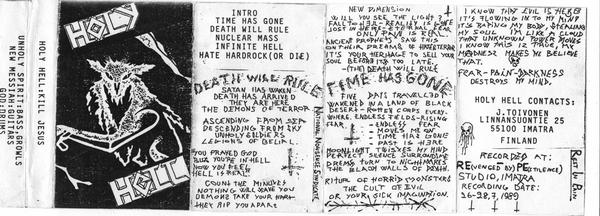 HOLY HELL:KILL JESUS
UNHOLY SPIRIT:BASS,GROWLS
NEW MESSIAH:GUITARS
GOD:DRUMS
HOLY
HELL
INTRO
TIME HAS GONE
DEATH WILL RULE
NUCLEAR MASS
INFINITE HELL
HATE HARDROCK(OR DIE)
DEATH WILL RULE
SATAN HAS WAKEN
DEATH HAS ARRIVED
THEY ARE HERE
THE DEMONS OF TERROR
ASCENDING FROM SEA
DESCENDING FROM SKY
UNHOLY
LEGIONS OF BELIAL.
YOU PRAYED GOD
BUT YOU'RE IN HELL
NOW YOU FEEL
HELL IS REAL.
COUNT THE MINUTES
NOTHING WILL SAVE YOU
DEMONS TAKE YOUR HAND
THEY RIP YOU APART
NATIONAL NOISEWISE SYNDICATE
NEW DIMENSION
WILL YOU SEE THE LIGHT
FALL TO HELL-REALITY IS GONE
LOST IN
ONLY PAIN IS REAL.
ANCIENT PROPHETS SAW THIS
ON THEIR DREAMS OF HATE&TERROR
IT'S YOUR HERITAGE TO SELL YOUR
SOUL BEFORE IT'S TOO LATE.
(THE)DEATH WILL RULE
TIME HAS GONE
FIVE DAYS TRAVELLED
WAKENED IN A LAND OF BLACK
DESERT-ROTTEN CORPS EVERY-
WHERE, ENDLESS FIELDS-RISING
FEAR.
ENDLESS FEAR
MOVES ME ON
TIME HAS GONE
PAST IS HERE
MOONLIGHT TWISTES MY MIND
PERFECT SILENCE SURROUNDING
DREAMS TURN TO NIGHTMARES
THE BLACK WALLS OF DEATH.
RITUAL OF HORRID MONSTERS
THE CULT OF EVIL
OR YOUR SICK IMAGINATION.
I KNOW THAT EVIL IS HERE
IT'S FLOWING IN TO MY MIND
IT'S EATING MY BODY, STEALING
MY SOUL. I'M LIKE A CLOUD
THAT UNKNOWN POWER MOVES
I KNOW THIS IS TRUE, MY
MADNESS MAKES ME BELIEVE
THAT.
FEAR-PAIN-DARKNESS
DESTROYS MY MIND.
HOLY HELL CONTACTS:
J.TOIVONEN
LINNANSUONTIE 25
55100 IMATRA
FINLAND
RECORDED AT:
RE(VENGED BY)PE(STILENCE)
STUDIO, IMATRA
RECORDING DATE:
26-28.7.1989
REST IN PAIN